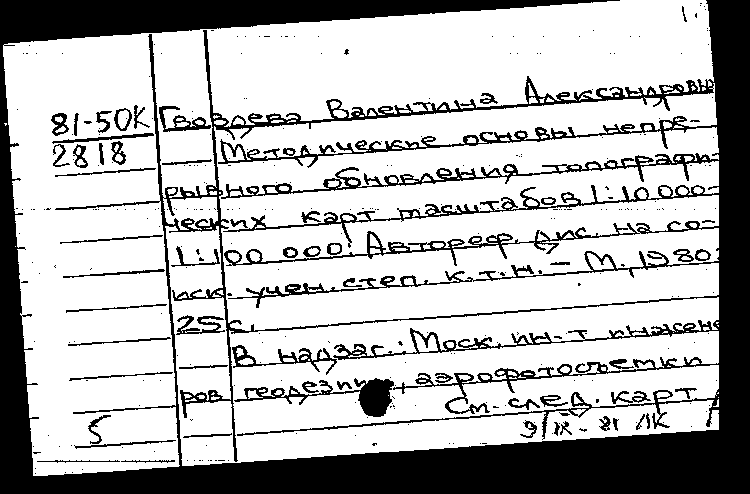 1.
81-50К Гвоздева, Валентина Александровна
2818 Методические основы непре-
рывного обновления топографи-
ческих карт масштабов 1:10 000-
1:100 000: Автореф. дис. на со-
иск. учен. степ. к.т.н. – М., 1980.
25 с.
В надзаг.: Моск. ин-т инжене
ров геодезии, аэрофотосъемки
См. след. карт
5 9/IX-81 ЛК